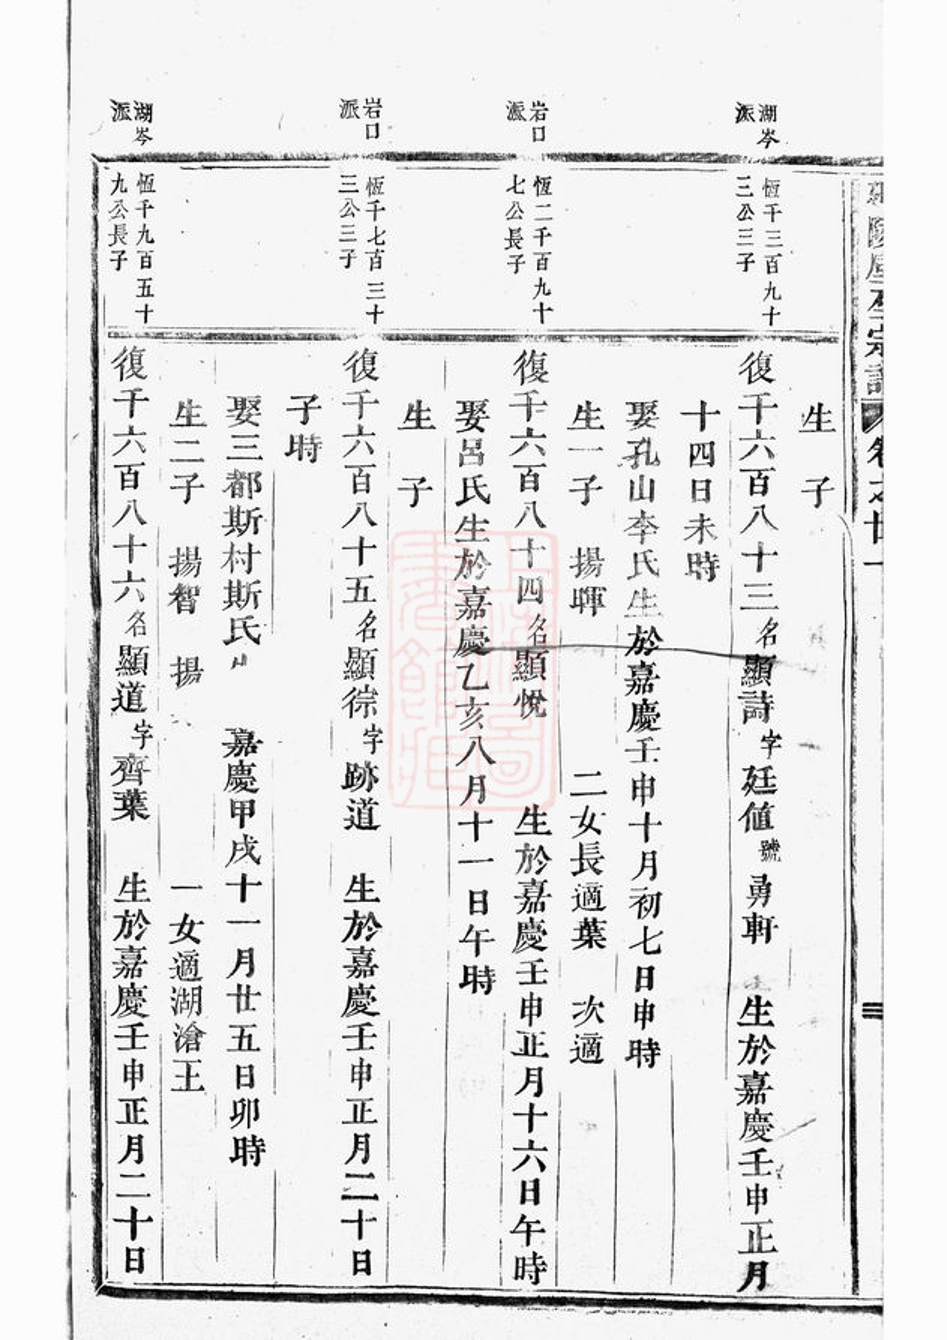 宗譜 卷之廿一
生 子
湖岑派
恆千三百九十三公三子
復千六百八十三名顯詩字廷値號勇軒 生於嘉慶壬申正月
十四日未時
娶孔山李氏生於嘉慶壬申十月初七日申時
生一子 揚暉 二女長適葉 次適
岩口派
恆二千百九十七公長子
復千六百八十四名顯悅 生於嘉慶壬申正月十六日午時
娶呂氏生於嘉慶乙亥八月十一日午時
生 子
岩口派
恆千七百三十三公三子
復千六百八十五名顯徖字跡道 生於嘉慶壬申正月二十日
子時
娶三都斯村斯氏 嘉慶甲戌十一月廿五日卯時
生二子 揚智 揚 一女適湖滄王
湖岑派
恆千九百五十九公長子
復千六百八十六名顯道字齊葉 生於嘉慶壬申正月二十日